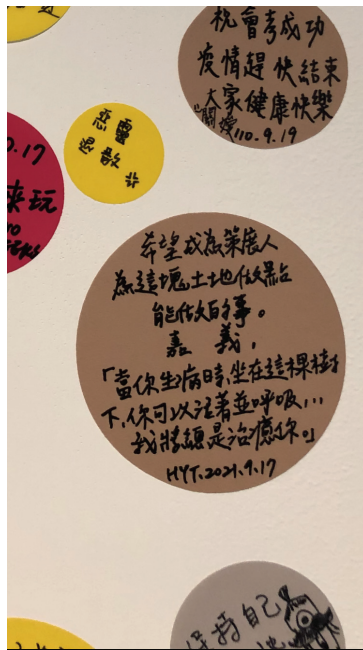 祝會考成功
疫情趕快結束
大家健康快樂
110.9.19
惡靈
退散
0.17
來玩
希望成為策展人
為這塊土地做點
能做的事。
嘉義,
「當你生病時,坐在這棵樹
下,你可以活著並呼吸...
我將總是治癒你。」
HYT.2021.9.17
保持自己